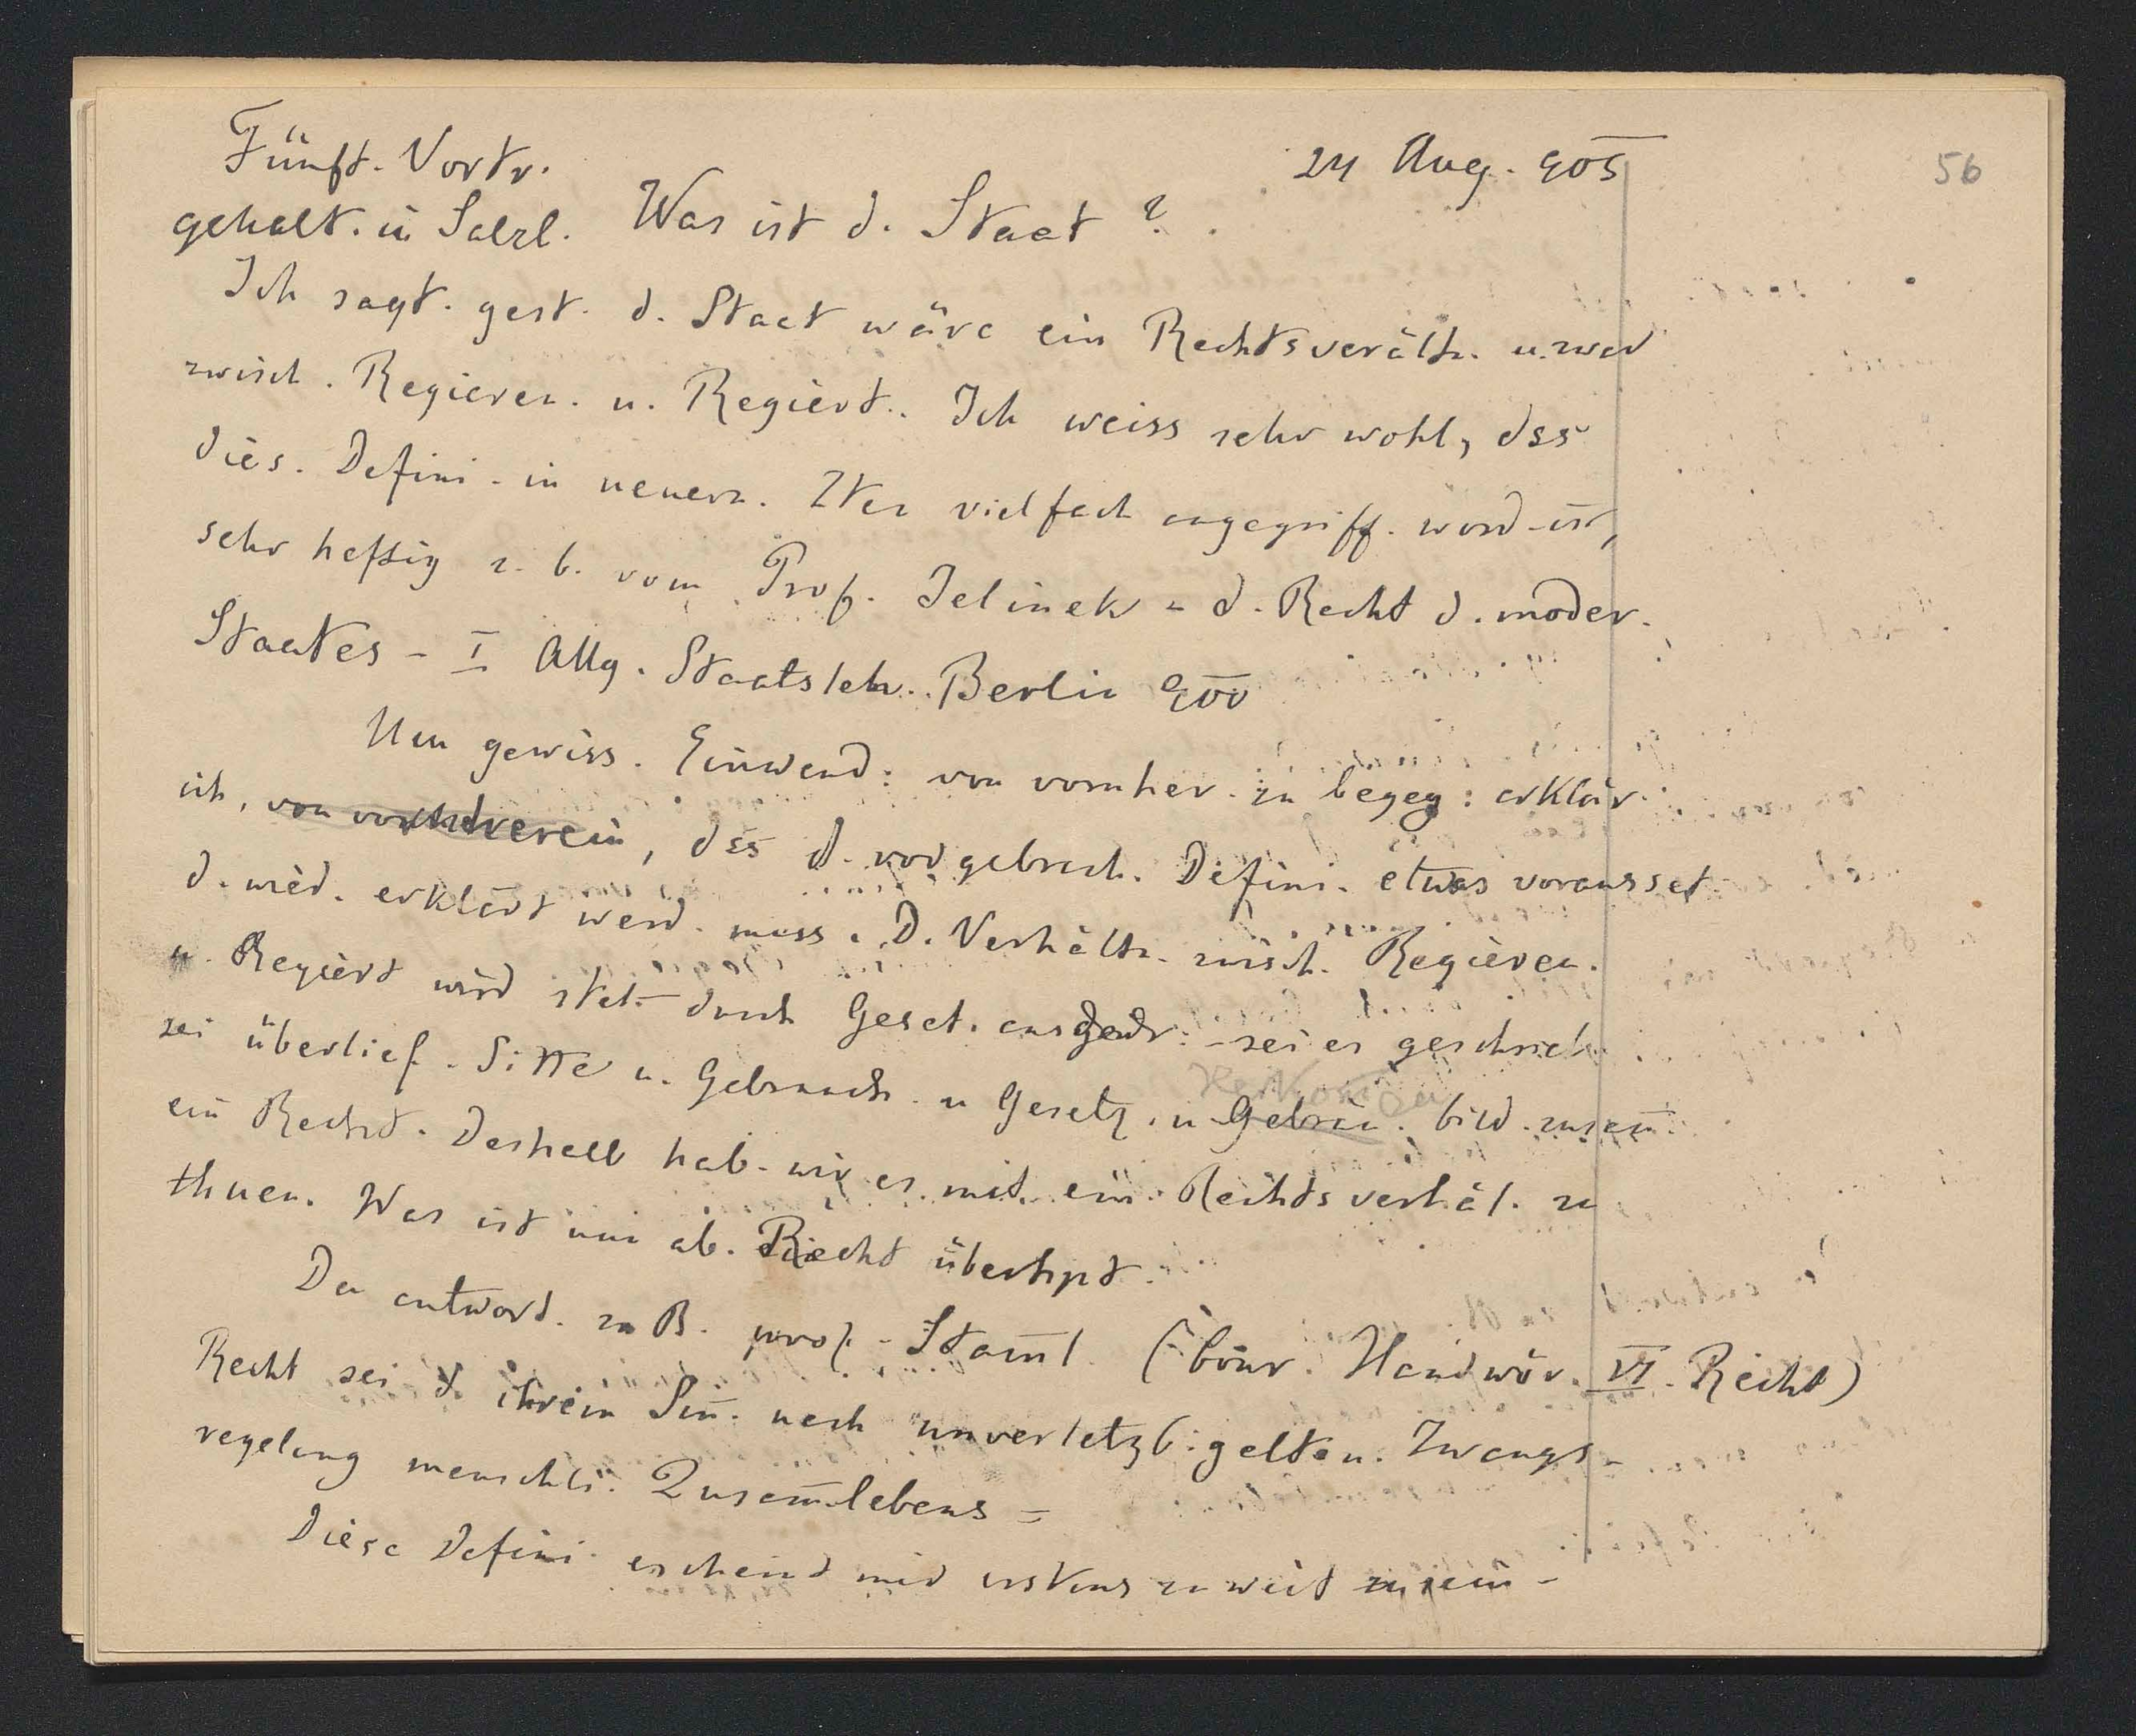 Fünft. Vortr. 24 Aug. 905 56
gehalt. in Salzl. Was ist d. Staat?
Ich sagt. gest. d. Staat wäre ein Rechtsverältn. u. zwar
zwisch. Regieren. u. Regiert.. Ich weiss sehr wohl, dss
dies. Defini. in neuern. Zten vielfach angegriff. word. ist,
sehr heftig z. b. vom Prof. Jelinek = d. Recht d. moder.
Staates - I Allg. Staatsleh.. Berlin 900
Um gewiss. Einwend: von vornher. zu begeg: erklär.
ich, von vornherein, dss d. vorgebrach. Defini. etwas voraussetz
d. wied. erklärt werd. muss. D. Verhältn. zwisch. Regieren.
u. Regiert wird stet. durch Geset. ausgedr: - sei es geschrieb.
sei überlief. Sitte u. Gebrauch. u Gesetz. u Gebräu. bild. zusam̅
Herkomen
ein Recht. Deshalb hab. wir es mit ein. Rechtsverhäl. zu
thuen. Was ist nun ab. Recht überhpt.
Da antwort. z. B. prof. Stam̅l. (Handwör. VI. Recht)
Recht sei d. ihrem Sin̅. nach unverletzb. gelten. Zwangs-
regelung menschli. Zusam̅lebens =
Diese Defini. erscheint mir erstens zu weit zu sein -